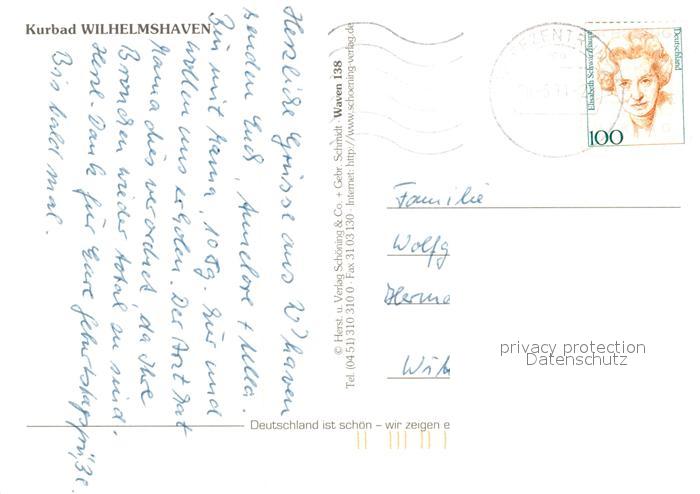 Kurbad WILHELMSHAVEN
Herzliche Grüsse aus W'haven
senden Euch, Annelore + Ulla.
Bin mit Mama, 10 Tg. hier und
wollen uns erholen. Der Arzt hat
Mama dies verordnet da Ihre
Bronchien wieder total zu sind.
Herzl. Dank für Eure Geburtstagsgrüße.
Bis bald mal.
© Herst. u. Verlag Schöning & Co. + Gebr. Schmidt · Waven 138
Tel. (04 51) 310 310 0 · Fax 31 03 130 · Internet: http://www.schoening-verlag.de
Elisabeth Schwarzhaupt
Deutschland
100
Familie
Wolfg
Herma
Wilh
privacy protection
Datenschutz
Deutschland ist schön – wir zeigen e